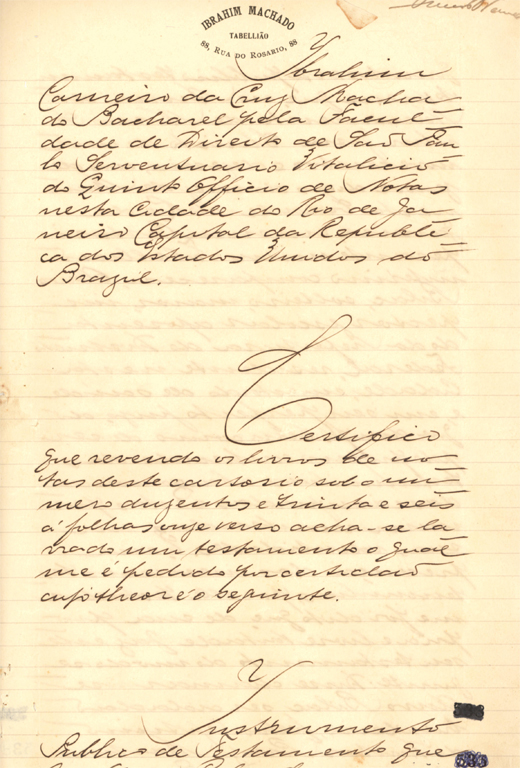 IBRAHIM MACHADO
TABELLIÃO
88, RUA DO ROSARIO, 88
Ibrahim
Carneiro da Cruz Macha
do Bacharel pela Facul
dade de Direito de São Pau
lo Serventuario Vitalicio
do Quinto Officio de Notas
nesta cidade do Rio de Ja
neiro Capital da Republi
ca dos Estados Unidos do
Brazil.
Certifico
que revendo os livros de no
tas deste cartorio sob o nu
mero duzentos e trinta e seis
á folhas onze verso acha-se la
vrado um testamento o qual
me é pedido por certidão
cujo theor é o seguinte.
Instrumento
Publico de Testamento que